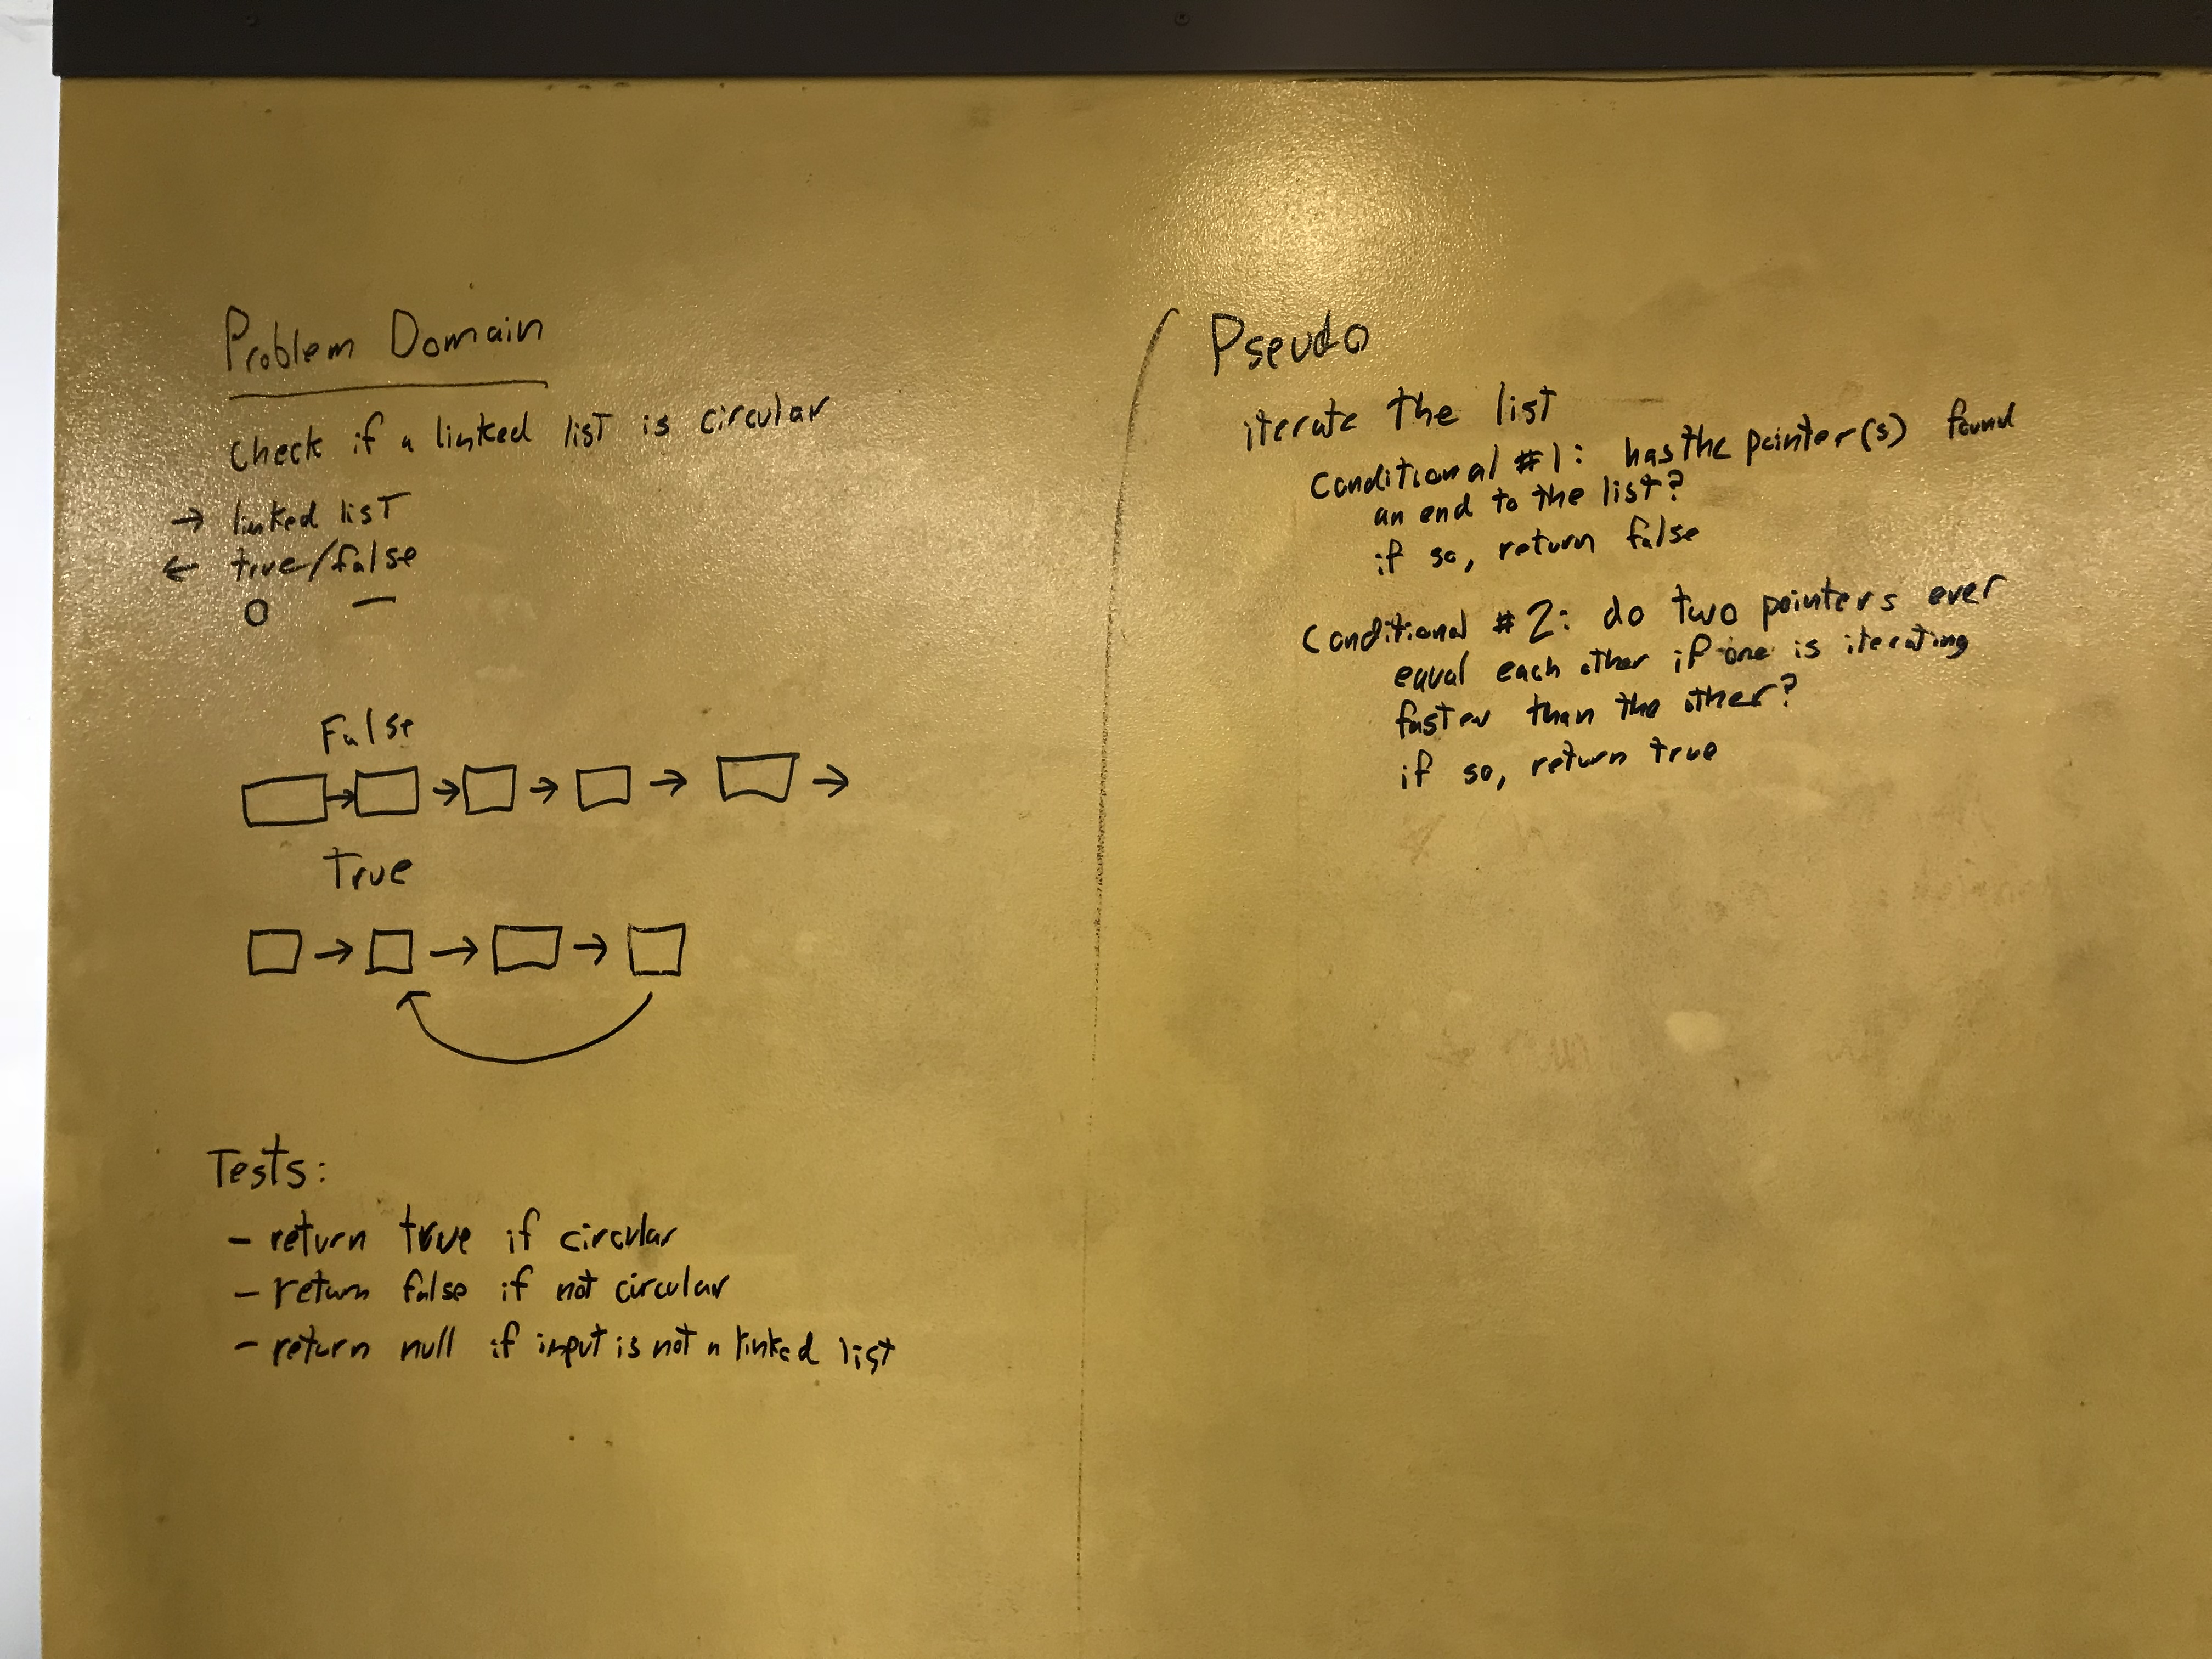 Problem Domain
Check if a linked list is circular
→ linked list
← true/false
O —
False
True
Tests:
- return true if circular
- return false if not circular
- return null if input is not a linked list
Pseudo
iterate the list
Conditional #1: has the pointer(s) found
an end to the list?
if so, return false
Conditional #2: do two pointers ever
equal each other if one is iterating
faster than the other?
if so, return true